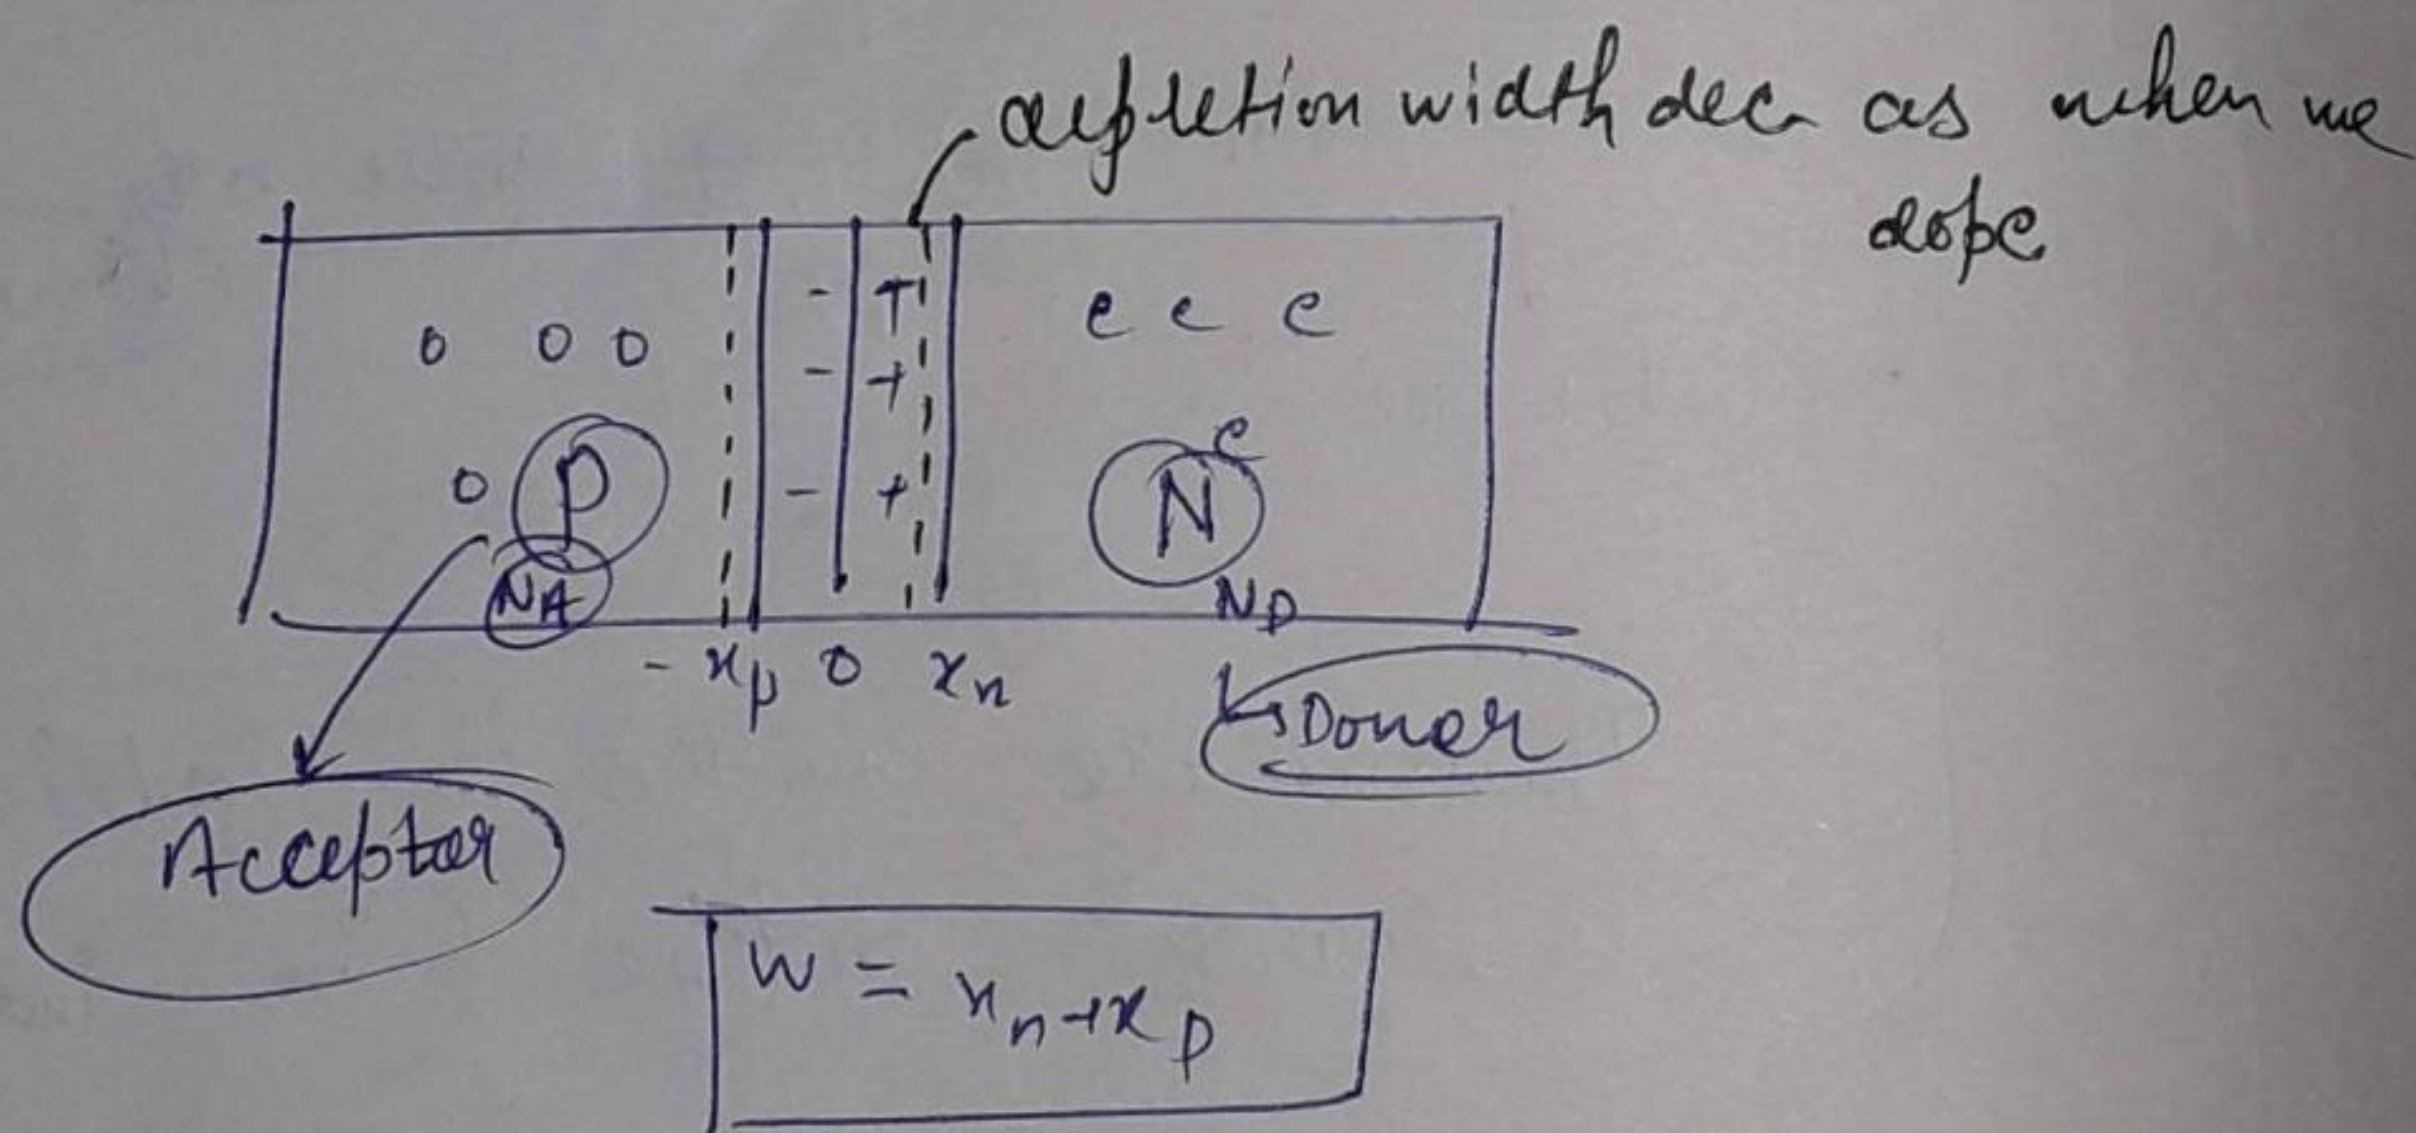 depletion width dec as when we
dope
- + e e e
o o o - +
e
o P - + N
NA ND
- xp 0 xn
↳ Donor
Acceptor
W = xn + xp